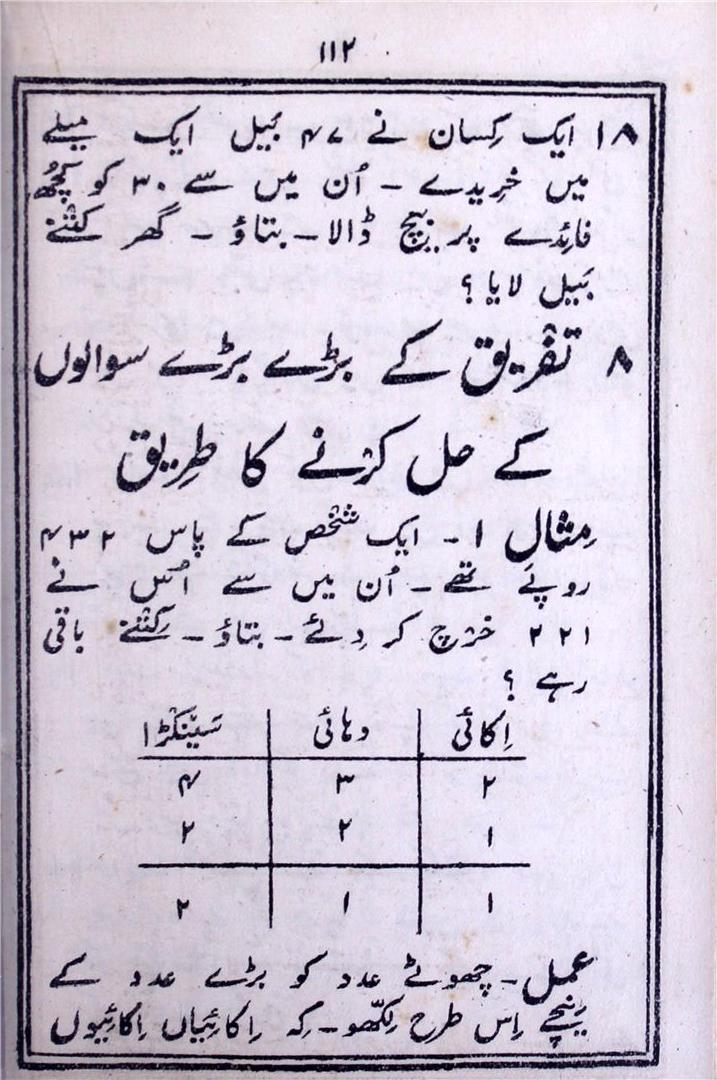 ۱۱۲
۱۸ ایک کِسان نے ۴۷ بَیل ایک میلے
میں خریدے ۔ اُن میں سے ۳۰ کو کُچھ
فائِدے پر بیچ ڈالا ۔ بتاؤ ۔ گھر کتنے
بَیل لایا ؟
۸ تفریق کے بڑے بڑے سوالوں
کے حل کرنے کا طریق
مِثال ۱ ۔ ایک شخص کے پاس ۴۳۲
روپَے تھے ۔ اُن میں سے اُس نے
۲۲۱ خرچ کر دِئے ۔ بتاؤ ۔ کِتنے باقی
رہے ؟
اِکائی دہائی سَینکڑا
۲ ۳ ۴
۱ ۲ ۲
۱ ۱ ۲
عمل ۔ چھوٹے عدد کو بڑے عدد کے
نیچے اِس طرح لِکھّو ۔ کِہ اِکائِیاں اِکائِیوں